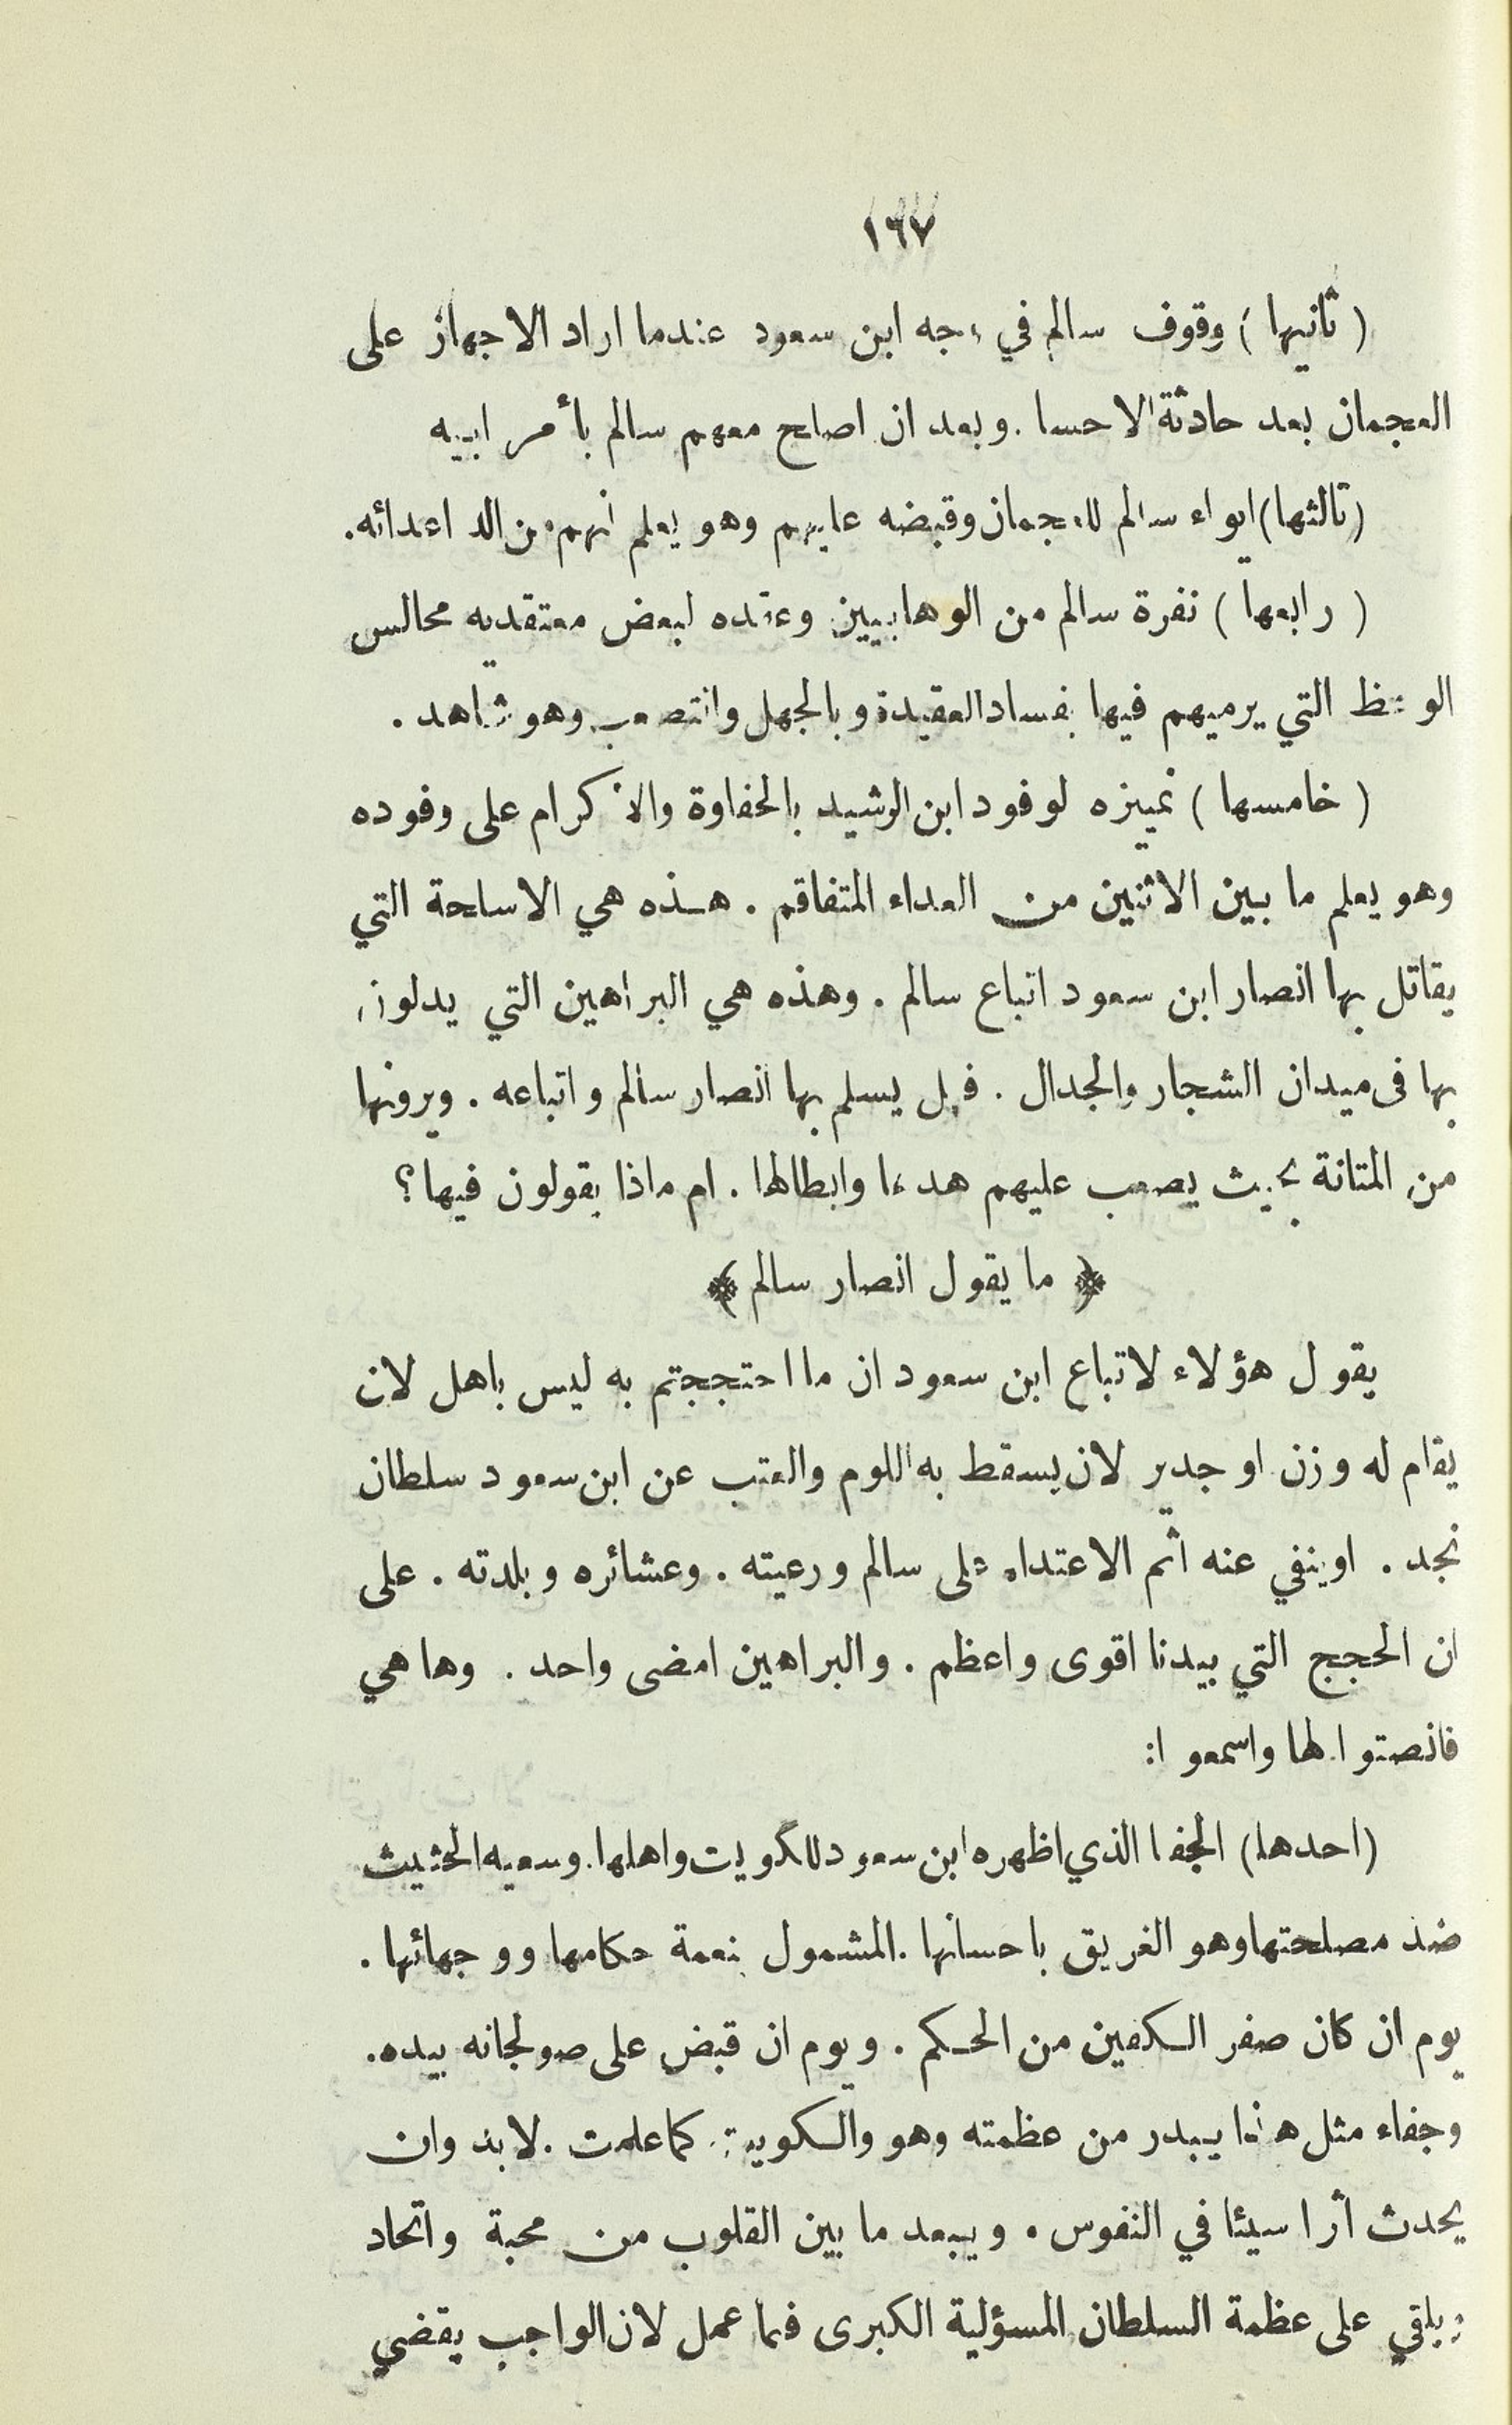 ١٦٧
( ثانيها ) وقوف سالم في وجه ابن سعود عندما اراد الاجهاز على
العجمان بعد حادثة الاحسا . وبعد ان اصلح معهم سالم بأمر ابيه
( ثالثها ) ايواء سالم للعجمان وقبضه عليهم وهو يعلم أنهم من الد اعدائه .
( رابعها ) نفرة سالم من الوهابيين وعقده لبعض معتقديه مجالس
الوعظ التي يرميهم فيها بفساد العقيدة وبالجهل والتعصب وهو شاهد .
( خامسها ) تمييزه لوفود ابن الرشيد بالحفاوة والاكرام على وفوده
وهو يعلم ما بين الاثنين من العداء المتفاقم . هذه هي الاسلحة التي
يقاتل بها انصار ابن سعود اتباع سالم . وهذه هي البراهين التي يدلون
بها فى ميدان الشجار والجدال . فهل يسلم بها انصار سالم واتباعه . ويرونها
من المتانة بحيث يصعب عليهم هدمها وابطالها . ام ماذا يقولون فيها ؟
﴿ ما يقول انصار سالم ﴾
يقول هؤلاء لاتباع ابن سعود ان ما احتججتم به ليس باهل لان
يقام له وزن او جدير لان يسقط به اللوم والعتب عن ابن سعود سلطان
نجد . او ينفي عنه اثم الاعتداء على سالم ورعيته . وعشائره وبلدته . على
ان الحجج التي بيدنا اقوى واعظم . والبراهين امضى واحد . وها هي
فانصتوا لها واسمعوا :
( احدها ) الجفا الذي اظهره ابن سعود للكويت واهلها . وسعيه الحثيث
ضد مصلحتها وهو الغريق باحسانها . المشمول بنعمة حكامها ووجهائها .
يوم ان كان صفر الكفين من الحكم . ويوم ان قبض على صولجانه بيده .
وجفاء مثل هذا يبدر من عظمته وهو والكويت كما علمت . لا بد وان
يحدث أثرا سيئا في النفوس . ويبعد ما بين القلوب من محبة واتحاد
ويلقي على عظمة السلطان المسؤلية الكبرى فيما عمل لان الواجب يقضي